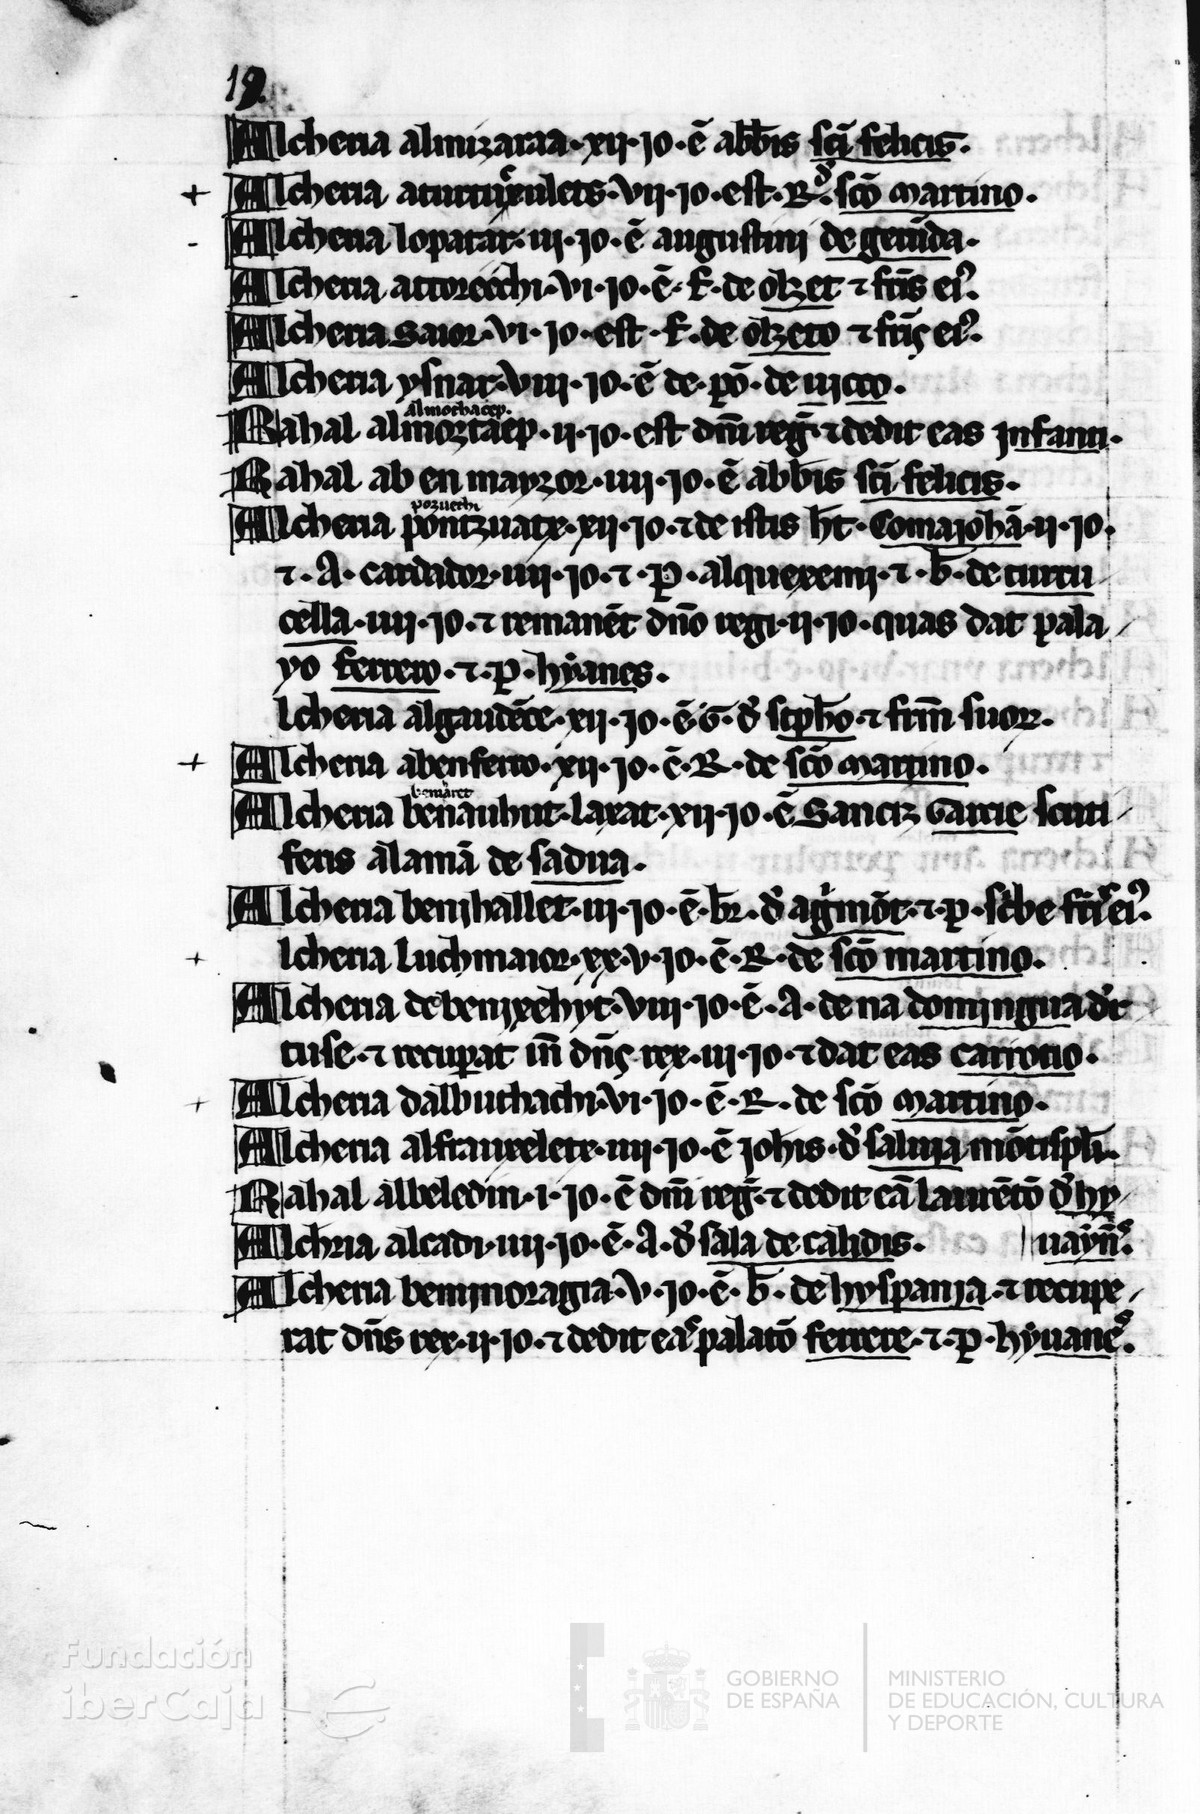 19.
Alcheria almizaraa · xii · jo · ē abb̄is sc̄i felicis ·
+ Alcheria · vii · jo · est · R · d̓ · sc̄o martino ·
- Alcheria loparar · iii · jo · ē augustini de geru͞da ·
Alcheria attorecchi · vi · jo · ē · f · de olzet ⁊ fr̄is ei᾿ ·
Alcheria Saior · vi · jo · est · f · de olzeto ⁊ fr̄is ei᾿ ·
Alcheria ysnar · viii · jo · ē de · po᷃ · de
almothacep ·
Rahal almoztaep · ii · jo · est dn̄i reḡ ⁊ dedit eas jnfanti ·
Rahal aben mayzor · iiii · jo · ē abb̄is sc̄i felicis ·
pozuechi
Alcheria pontzuatx · xii · jo · ⁊ de istis h̄t · Comajohā · ii · jo ·
⁊ · A · cardador · iiii · jo · ⁊ · P · alquexemi · ⁊ · b̄ · de turtu
cella · iiii · jo · ⁊ remanēt dn̄o regi · ii · jo · quas dat pala
yo ferrero · ⁊ · p · hyānes ·
lcheria algaudēce · xii · jo · ē · G · d̓ scpho · ⁊ frm̄ suor ·
+ Alcheria abenferro · xii · jo · ē · R · de sc̄o martino ·
benāret
Alcheria benauhut · laxat · xii · jo · ē Sanciz Garcie scuti
feris ālamā de sadua ·
Alcheria benihallet · iii · jo · ē · br̄ · d̓ ag̓mōt · ⁊ · p · scbe fr̄is ei᾿ ·
+ lcheria Luchmaior · xx · v · jo · ē · R · de sc̄o martino ·
Alcheria de benixehyt · viii · jo · ē · A · de na domingua d̓r
tuse · ⁊ recuperat in̄ dn̄s rex · iii · jo · ⁊ dat eas carrotio ·
+ Alcheria dalbuchachi · vi · jo · ē · R · de sc̄o martino ·
Alcheria alfrauxelete · iiii · jo · ē joh̄is · d̓ salvia mōtispl̄i ·
Rahal albeledin · i · jo · ē dn̄i reḡ · ⁊ dedit eā laurētō d̓ hy
Alchria alcadi · iiii · jo · ē · A · d̓ sala de calidis · uayn̄es ·
Alcheria beninoragia · v · jo · ē · b̄ · de hyspania · ⁊ recupe
rat dn̄s rex · ii · jo · ⁊ dedit eas palatō ferrere · ⁊ · p · hyuanes ·
Fundación
iberCaja
GOBIERNO
DE ESPAÑA
MINISTERIO
DE EDUCACIÓN, CULTURA
Y DEPORTE